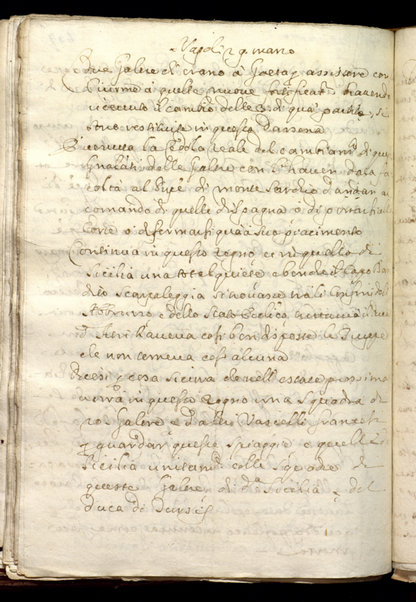 Napoli 29 marzo
Due Galere ch'erano à Gaeta p assistere con
à quelle nuove fortificat.ni havendo
ricevuto il cambio delle 2 di quà partite, si
sono restituite in questa Darsena
È venuta la Cedola Reale del cambiam.to di que
delle Galere con l'haver data fa
coltà al di monte Sardo d'andar al
comando di quelle di Spagna ò di portarsi alla
Corte ò di fermarsi quà à suo piacimento
Continua in questo regno e in quello di
Sicilia una total quiete e benche il Capo ban
dito Scarpaleggia si trovasse trà li confini del
Abbruzzo e dello Stato Eccl.co
Altri haveva così ben disposte le Truppe
che non temeva cosa alcuna
Dicesi p cosa sicura che nell'estate prossima
verrà in questo regno una Squadra di
Galere e d'altri Vascelli
p guardar queste spiaggie e quelle di
Sicilia unitam.te colle Squadre di
queste Galere di d.a Sicilia e del
Duca di Tursis